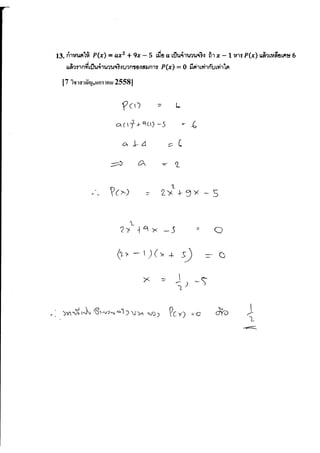 13. กำหนดให้ P(x) = ax² + 9x − 5 เมื่อ a เป็นจำนวนจริง ถ้า x − 1 หาร P(x) แล้วเหลือเศษ 6
แล้วรากที่เป็นจำนวนจริงบวกของสมการ P(x) = 0 มีค่าเท่ากับเท่าใด
[7 วิชาสามัญ, มกราคม 2558]
P(1) = 6
a(1)² + 9(1) − 5 = 6
a + 4 = 6
⇒ a = 2
∴ P(x) = 2x² + 9x − 5
2x² + 9x − 5 = 0
(2x − 1)(x + 5) = 0
x = 1/2, −5
∴ รากที่เป็นจำนวนจริงบวกของ P(x) = 0 คือ 1/2